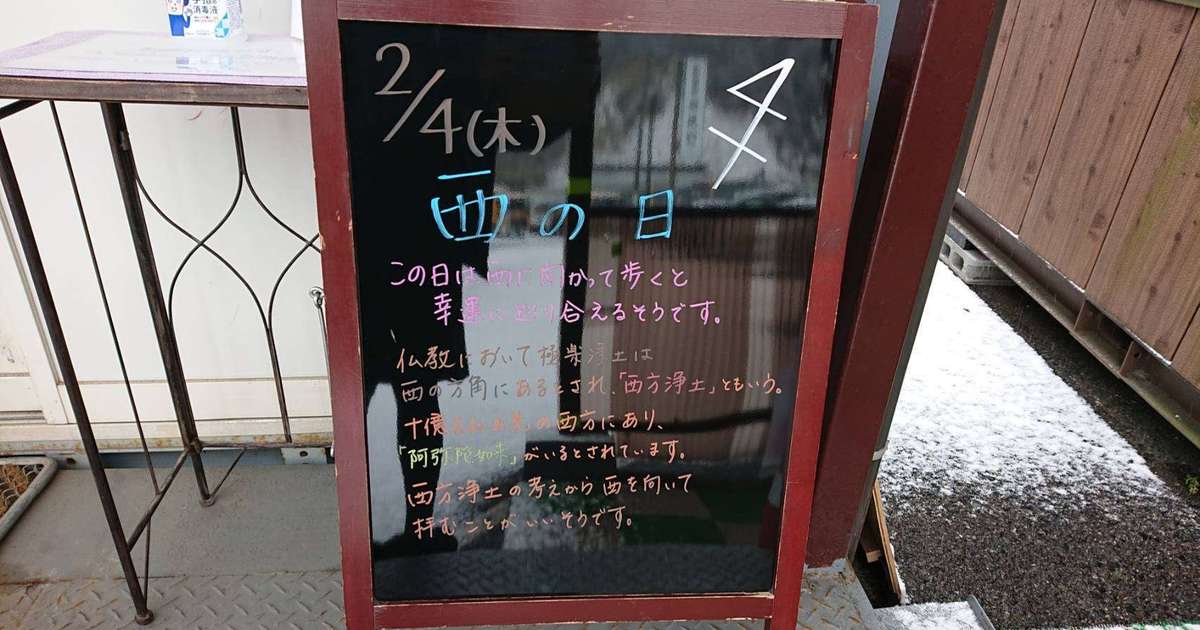 消毒液
2/4(木)
西の日
この日は西に向かって歩くと
幸運に巡り合えるそうです。
仏教において極楽浄土は
西の方角にあるとされ、「西方浄土」ともいう。
十億の西方にあり、
「阿弥陀如来」がいるとされています。
西方浄土の考えから西を向いて
拝むことがいいそうです。